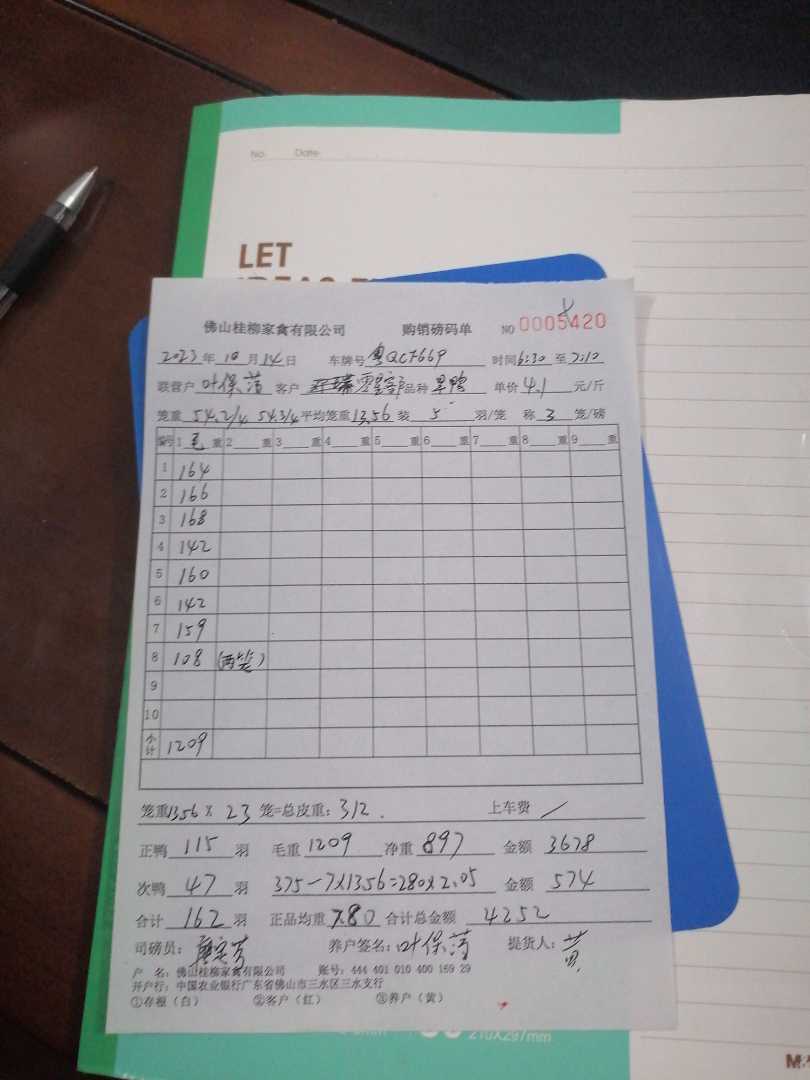 No. Date
LET
佛山桂柳家禽有限公司 购销磅码单 NO 0005420
2023年10月14日 车牌号粤QCF669 时间6:30至7:10
联营户 叶保 客户 零星部 品种 单价4.1元/斤
笼重 54.2/4 54.3/4 平均笼重13.56 装5羽/笼 称3笼/磅
编号 1毛重 2重 3重 4重 5重 6重 7重 8重 9重
1 164
2 166
3 168
4 142
5 160
6 142
7 159
8 108 (两笼)
9
10
小计 1209
笼重13.56×23笼=总皮重:312. 上车费 /
正鸭115羽 毛重1209 净重897 金额3678
次鸭47羽 375-7×1356=280×2.05 金额574
合计162羽 正品均重7.80 合计总金额4252
司磅员: 养户签名:叶保 提货人:黄
户 名:佛山桂柳家禽有限公司 账号:444 401 010 400 159 29
开户行:中国农业银行广东省佛山市三水区三水支行
①存根(白) ②客户(红) ③养户(黄)
210X297/mm